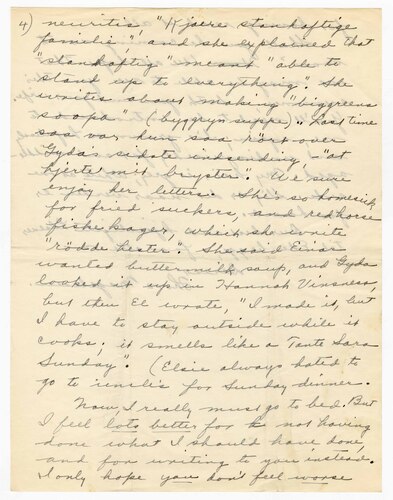 4) neuritis, "Kjaere standhaftige
familie", and she explained that
"standhaftig" meant "able to
stand up to everything". She
writes about making "biggreens
soopa" (byggryn suppe). "Last time
saa var hun saa rört over
Gyda's sidste indsending, "at
hjertemit brister". We sure
enjoy her letters. She's so homesick
for fried suckers, and redhorse
fiskekager, which she wrote
"rödde hester". She said Einar
wanted buttermilk soup, and Gyda
looked it up in Hannah Vinsness,
but then El wrote, "I made it, but
I have to stay outside while it
cooks; it smells like a Tante Sara
Sunday". (Elsie always hated to
go to for Sunday dinner.
Now I really must go to bed. But
I feel lots better for not having
done what I should have done,
and for writing to you instead.
I only hope you don't feel worse